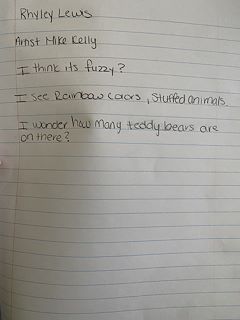 Rhyley Lewis
Artist Mike Kelly
I think its fuzzy?
I see Rainbow Colors, Stuffed animals.
I wonder how many teddy bears are
on there?